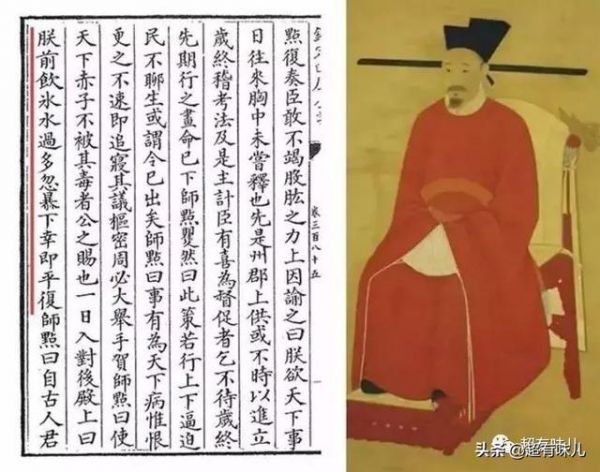 卷三百八十五
點復奏臣敢不竭股肱之力上因諭之曰朕欲天下事
日往來胸中未嘗釋也先是州郡上供或不時以進立
歲終稽考法及是主計臣有喜為督促者乞不待歲終
先期行之畫命已下師點矍然曰此策若行上下逼迫
民不聊生或謂令已出矣師點曰事有為天下病惟恨
更之不速即追寢其議樞密周必大舉手賀師點曰使
天下赤子不被其毒者公之賜也一日入對後殿上曰
朕前飲氷水過多忽暴下幸即平復師點曰自古人君
超有味儿
头条 @超有味儿